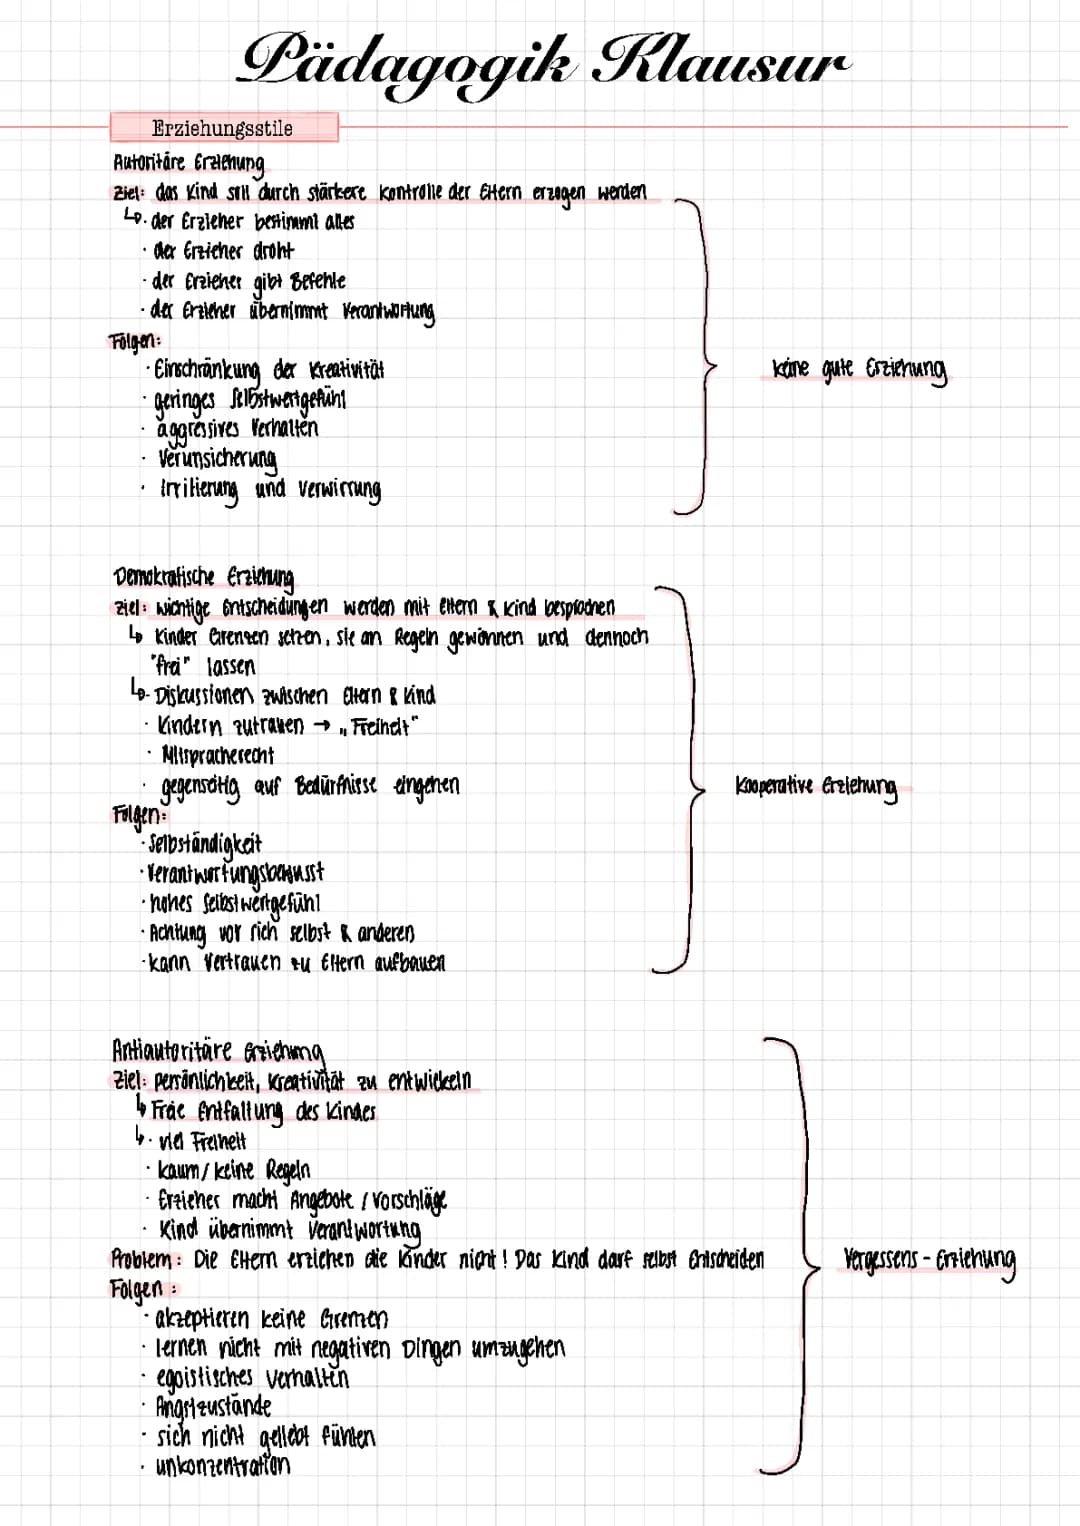 Pädagogik Klausur
Erziehungsstile
Autoritäre Erziehung
Ziel: das Kind soll durch stärkere Kontrolle der Eltern erzogen werden
↳· der Erzieher bestimmt alles
· der Erzieher droht
· der Erzieher gibt Befehle
· der Erzieher übernimmt Verantwortung
Folgen:
· Einschränkung der Kreativität
keine gute Erziehung
· geringes Selbstwertgefühl
· aggressives Verhalten
· Verunsicherung
· Irritierung und Verwirrung
Demokratische Erziehung
Ziel: wichtige Entscheidungen werden mit Eltern & Kind besprochen
↳ Kinder Grenzen setzen, sie an Regeln gewöhnen und dennoch
"frei" lassen
↳· Diskussionen zwischen Eltern & Kind
· Kindern zutrauen → „Freiheit"
· Mitspracherecht
· gegenseitig auf Bedürfnisse eingehen
Kooperative Erziehung
Folgen:
· Selbständigkeit
· Verantwortungsbewusst
· hohes Selbstwertgefühl
· Achtung vor sich selbst & anderen
· kann Vertrauen zu Eltern aufbauen
Antiautoritäre Erziehung
Ziel: Persönlichkeit, Kreativität zu entwickeln
↳ Freie Entfaltung des Kindes
↳· viel Freiheit
· kaum/keine Regeln
· Erzieher macht Angebote / Vorschläge
· Kind übernimmt Verantwortung
Problem: Die Eltern erziehen die Kinder nicht! Das Kind darf selbst Entscheiden
Vergessens-Erziehung
Folgen:
· akzeptieren keine Grenzen
· lernen nicht mit negativen Dingen umzugehen
· egoistisches Verhalten
· Angstzustände
· sich nicht geliebt fühlen
· unkonzentration